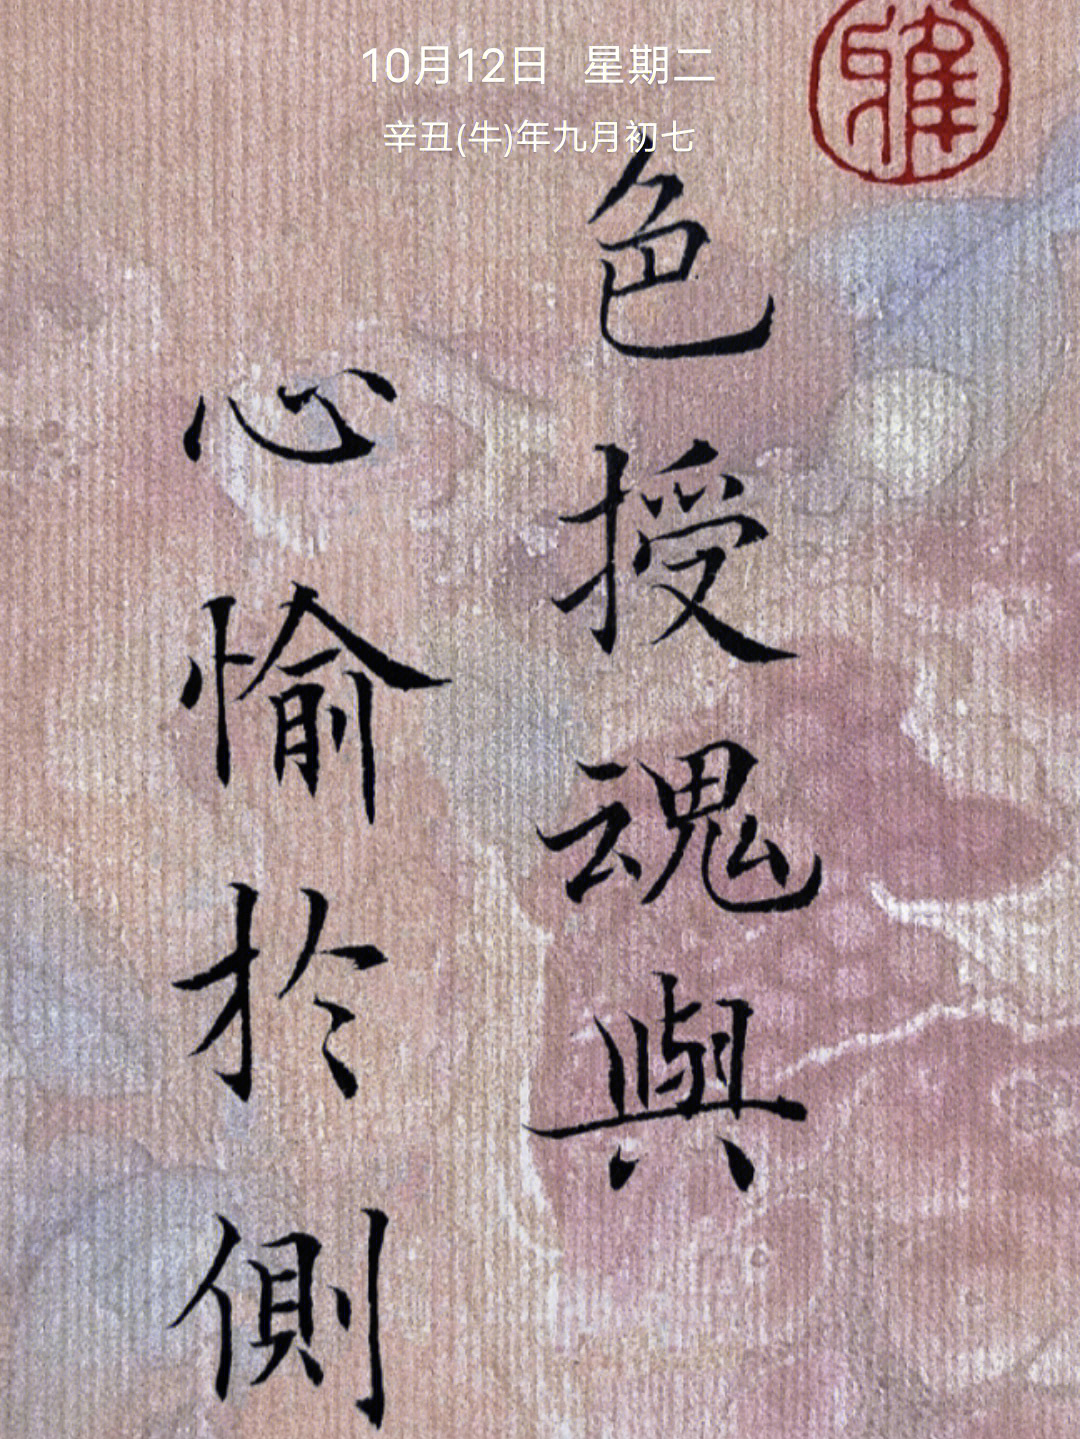 10月12日 星期二
辛丑(牛)年九月初七
雅
色授魂與
心愉於側